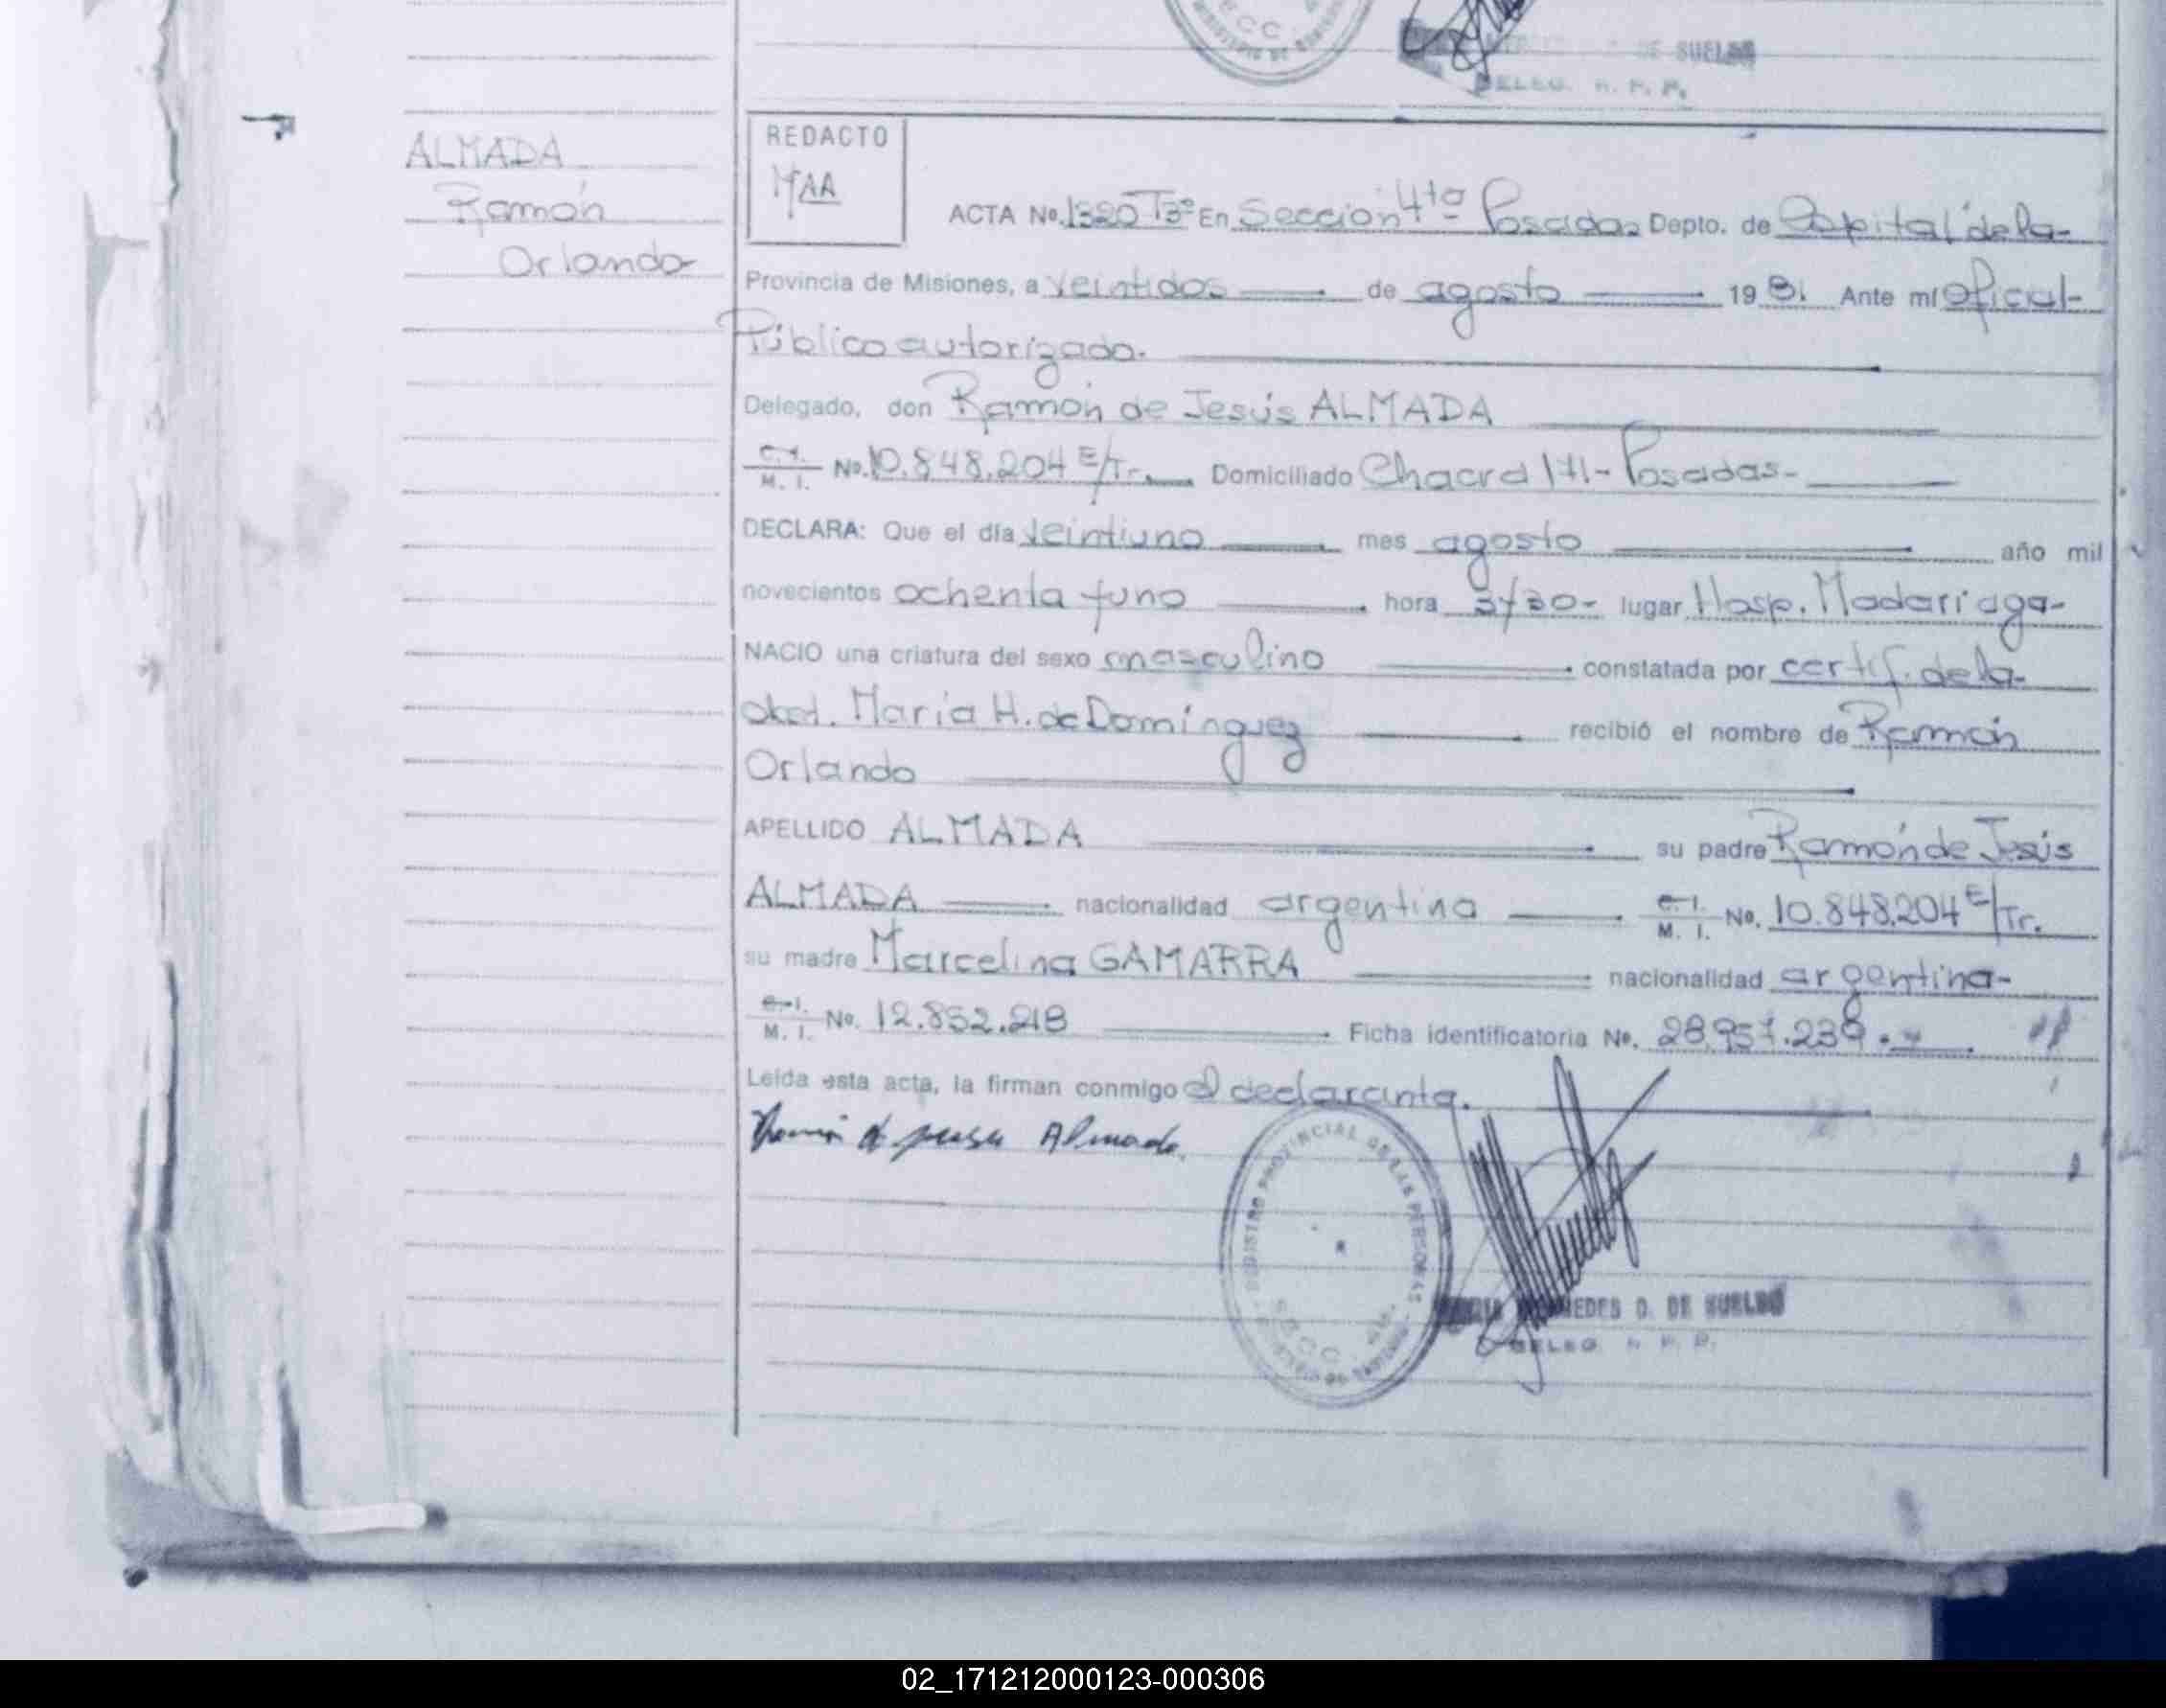 DE SUELDO
DELEG. R. P. P.
ALMADA
Ramón
Orlando
REDACTO
MAA
ACTA No. 1320 T3º En Sección 4ta Posadas Depto. de Capital de la-
Provincia de Misiones, a veintidos de agosto 1981 Ante mi Oficial-
Público autorizado.
Delegado, don Ramón de Jesús ALMADA
C.I. M. I. No. 10.848.204 E/Tr. Domiciliado Chacra 171- Posadas-
DECLARA: Que el día veintiuno mes agosto año mil
novecientos ochenta y uno hora 3y30- lugar Hosp. Madariaga-
NACIO una criatura del sexo masculino constatada por certif. de la-
obst. María H. de Domínguez recibió el nombre de Ramón
Orlando
APELLIDO ALMADA su padre Ramón de Jesús
ALMADA nacionalidad argentina C.I. M. I. No. 10.848.204 E/Tr.
su madre Marcelina GAMARRA nacionalidad argentina-
C.I. M. I. No. 12.852.218 Ficha identificatoria No. 28.957.239.
Leída esta acta, la firman conmigo el declarante.
Ramón de Jesus Almada.
REGISTRO PROVINCIAL DE LAS PERSONAS
D. DE SUELDO
DELEG. R. P. P.
02_171212000123-000306